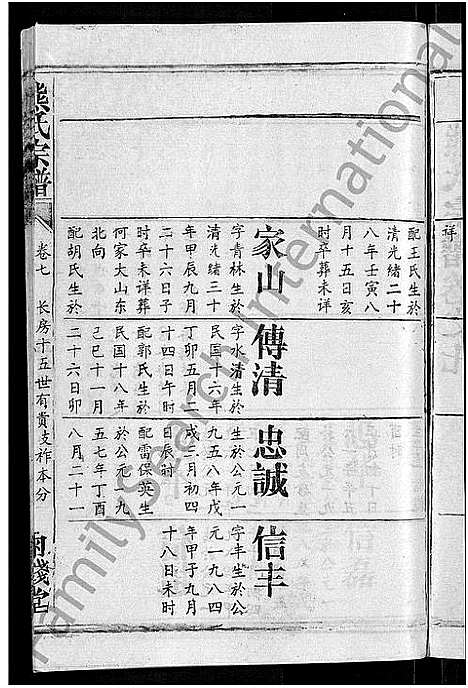 祥
配王氏生於
清光緒二十
八年壬寅八
月十五日亥
时卒葬未详
家山
字青林生於
清光緒三十
年甲辰九月
二十六日子
时卒未详葬
何家大山东
北向
配胡氏生於
傳清
字水清生於
民国十六年
丁卯五月二
十四日午时
配郭氏生於
民国十八年
己巳十一月
二十六日卯
忠誠
生於公元一
九五八年戊
戌三月初四
日辰时
配雷保英生
於公元一九
五七年丁酉
八月二十一
信丰
字丰生於公
元一九八四
年甲子九月
十八日未时
熊氏宗譜
卷七
长房十五世有貴支祚本分
堂
FamilySearch International